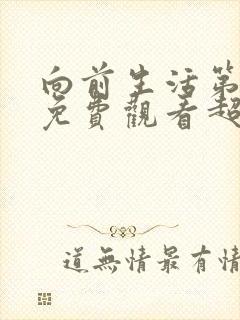 向前生活第
免費觀看超
道無情最有情